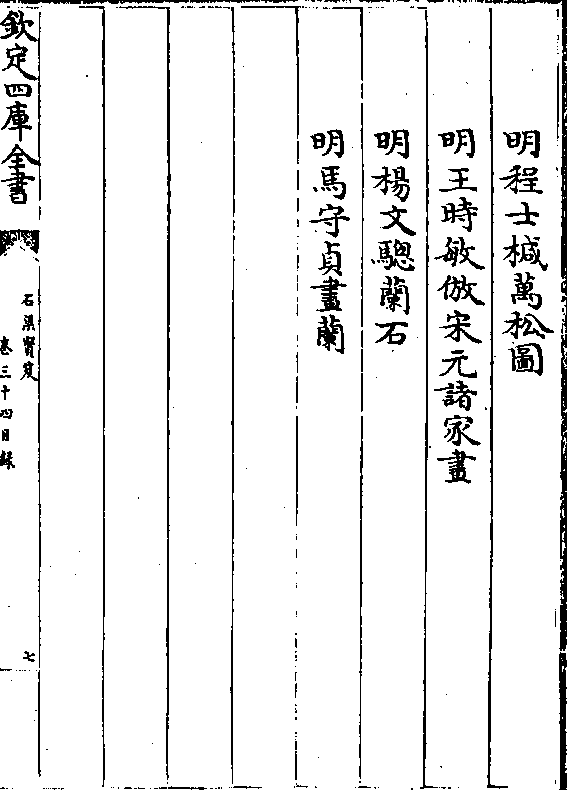 明程士棫萬松圖
明王時敏倣宋元諸家畫
明楊文驄蘭石
明馬守貞畫蘭
欽定四庫全書
石渠寳笈
卷三十四目録
七